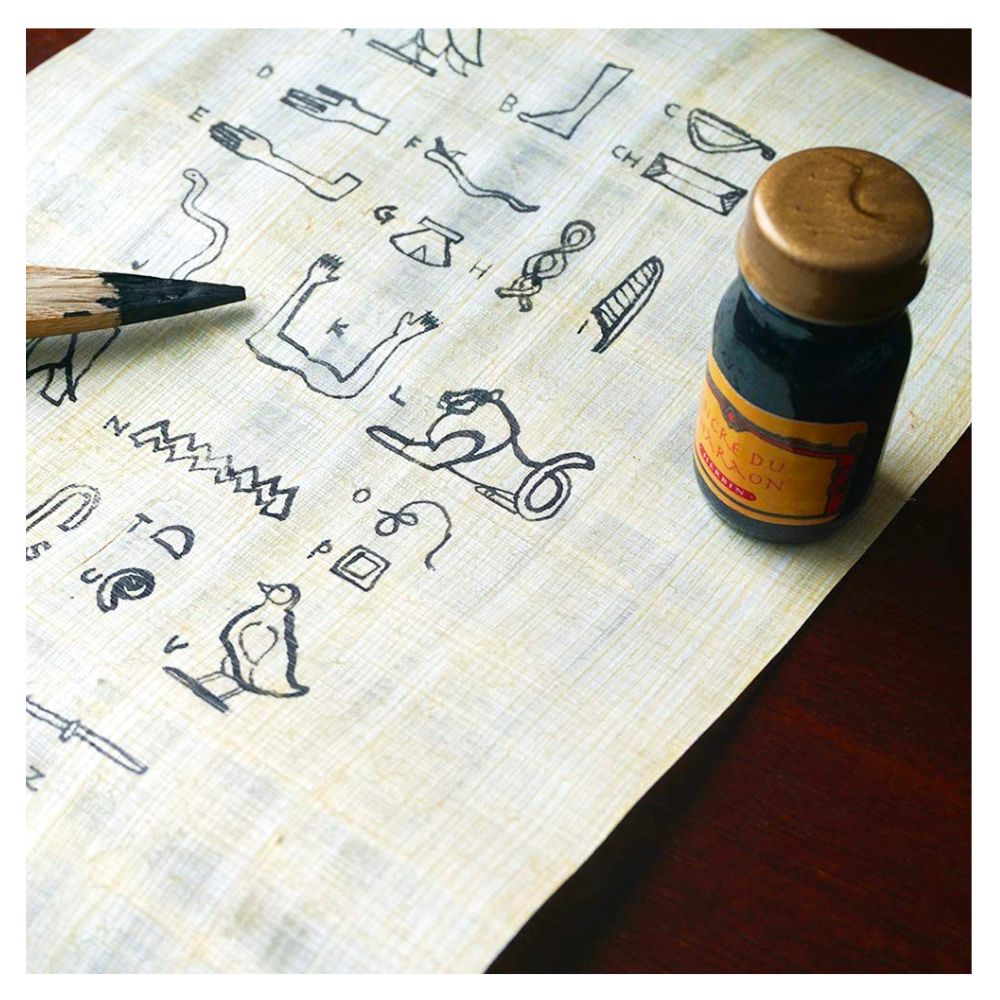 D
B
C
E
F
CH
G
H
K
L
N
O
P
S
T
U
V
Z
CRE DU
ARAON
HERBIN